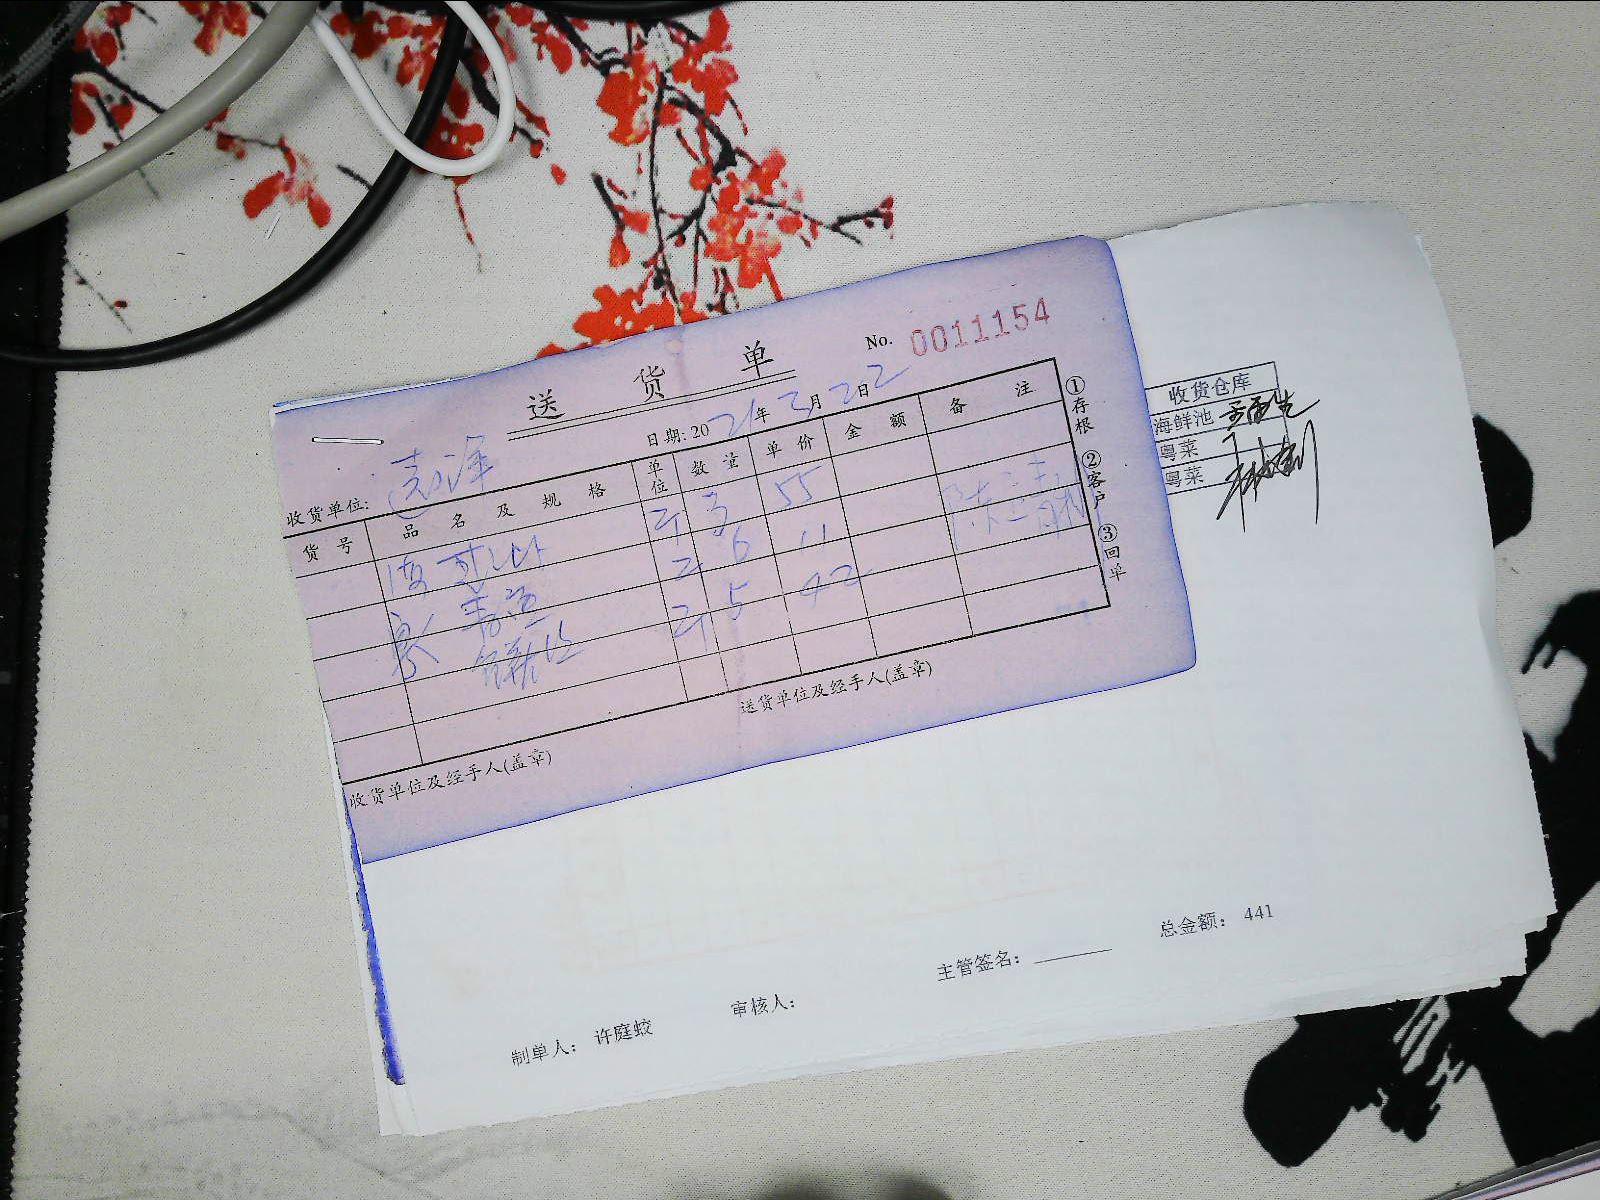 送货单
No. 0011154
日期: 2021年3月22日
收货单位:
货号 品名及规格 单位 数量 单价 金额 备注
斤 3 55
斤 6 11
斤 5 42
①存根 ②客户 ③回单
收货单位及经手人(盖章) 送货单位及经手人(盖章)
收货仓库
海鲜池
粤菜
粤菜
制单人: 许庭蛟 审核人: 主管签名: 总金额: 441